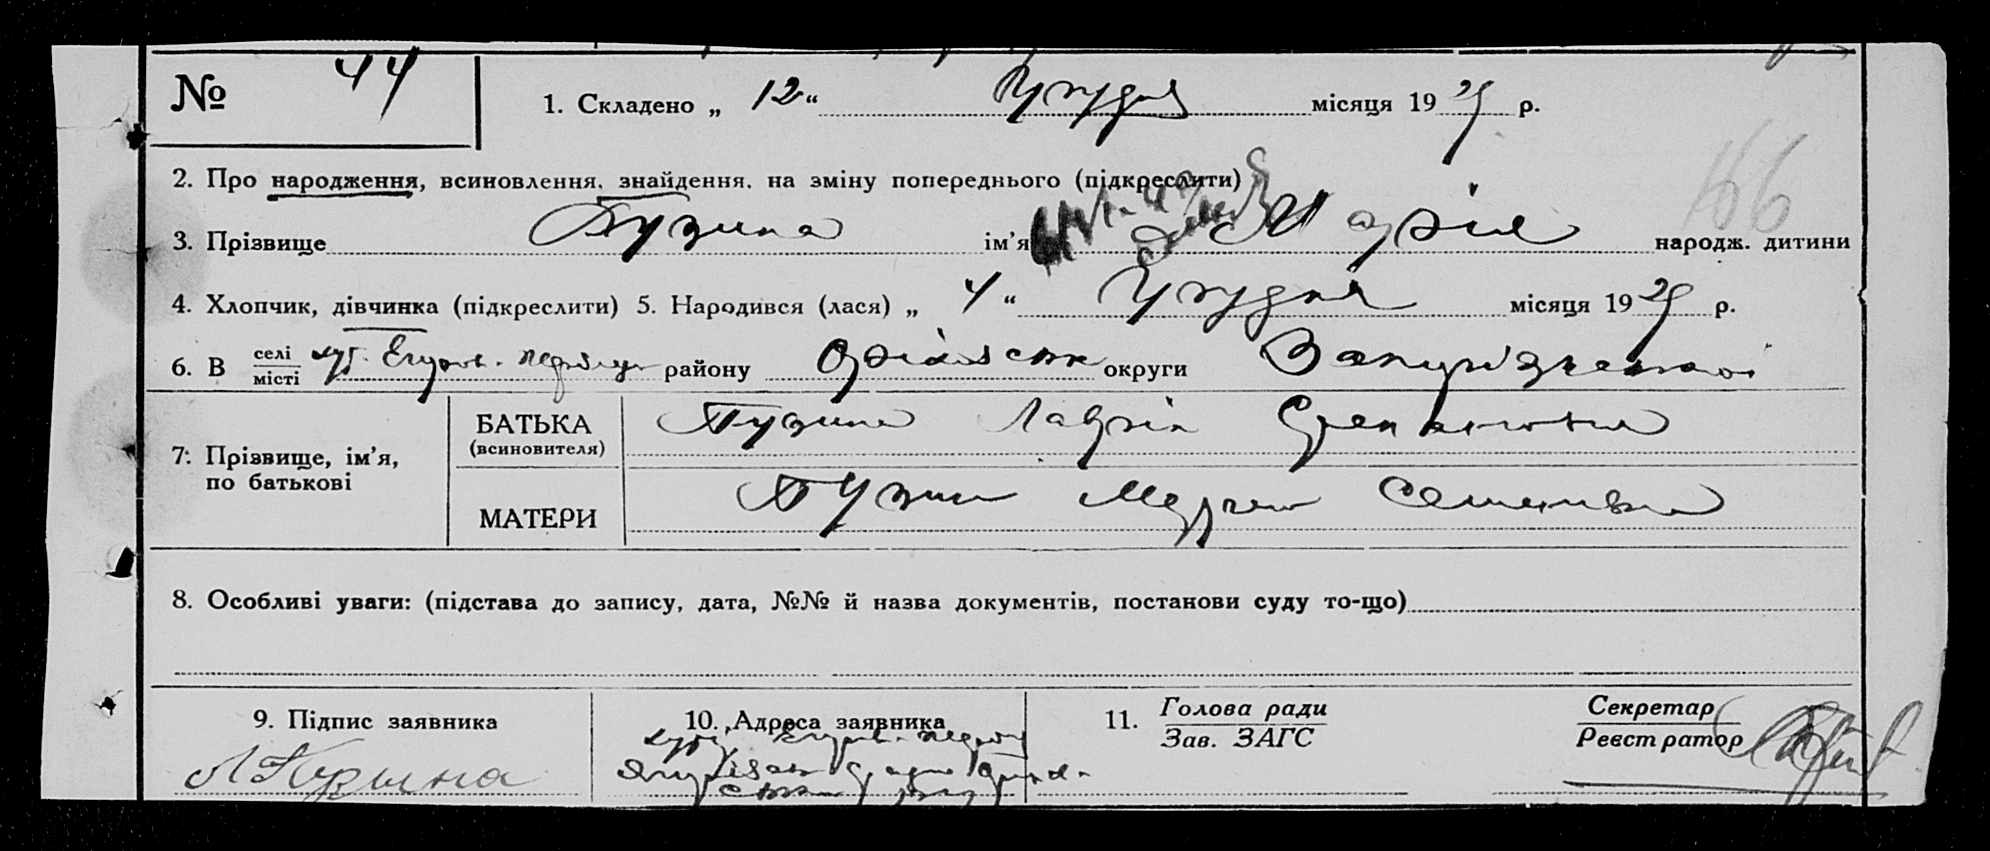 № 44
1. Складено „ 12 “ Грудня місяця 1925 р.
2. Про народження, всиновлення, знайдення, на зміну попереднього (підкреслити)
3. Прізвище Пузина ім’я Марія народж. дитини
166
4. Хлопчик, дівчинка (підкреслити) 5. Народився (лася) „ 4 “ Грудня місяця 1925 р.
6. В селі місті хут. району округи Запорізької
7. Прізвище, ім’я, по батькові
БАТЬКА (всиновителя) Пузина Лаврін Степанович
МАТЕРИ Пузина Семенівна
8. Особливі уваги: (підстава до запису, дата, №№ й назва документів, постанови суду то-що)
9. Підпис заявника
Л Пузына
10. Адреса заявника
11. Голова ради
Зав. ЗАГС
Секретар
Реєстратор